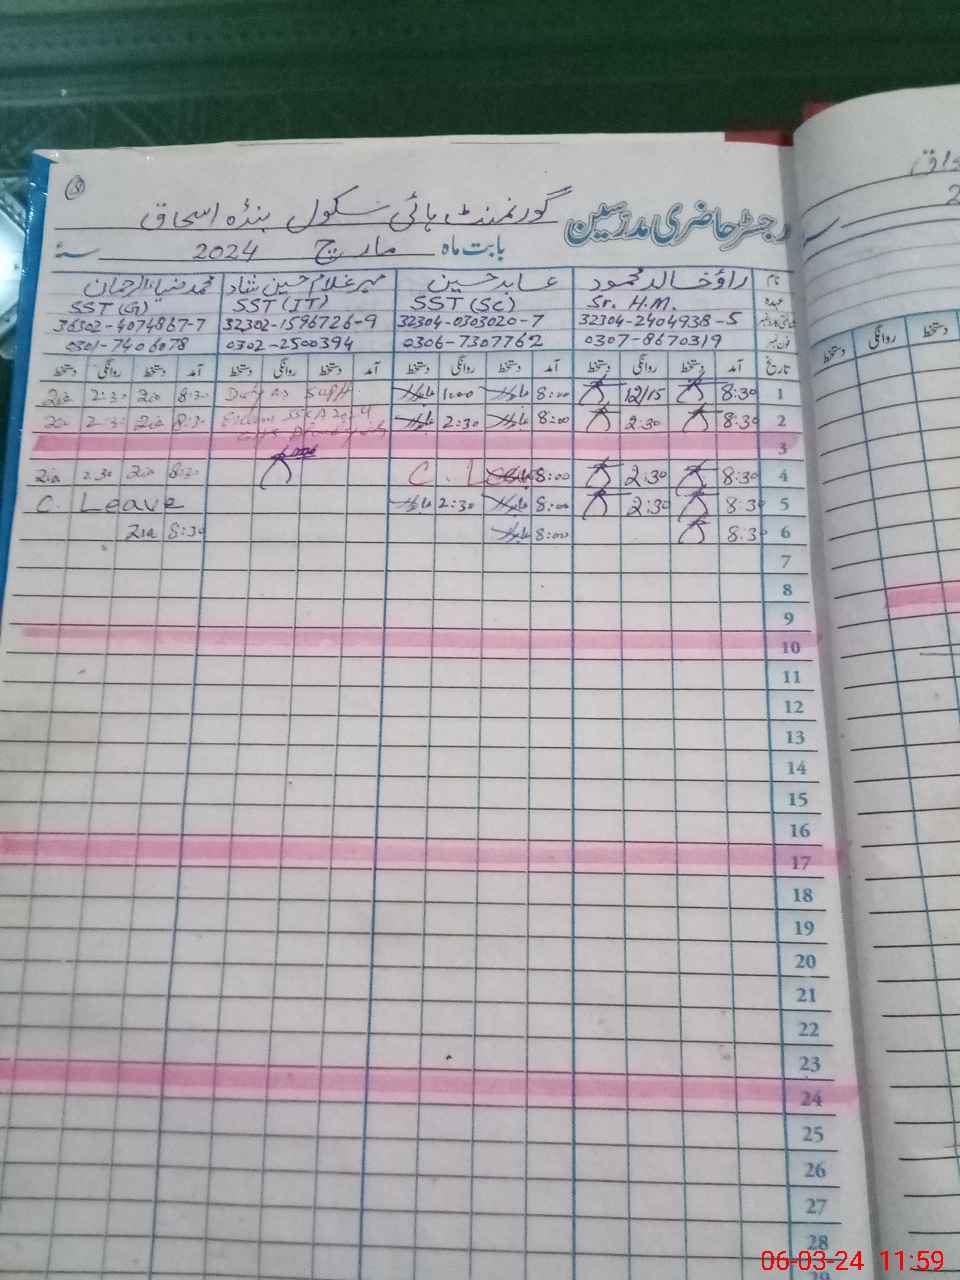 رجسٹر حاضری مدرسین گورنمنٹ ہائی سکول بنڈہ اسحاق
بابت ماہ مارچ 2024 سنہ
نام راؤ خالد محمود عابد حسین مہر غلام حسین شاد محمد ضیاء الرحمان
عہدہ Sr. H.M. SST (SC) SST (IT) SST (G)
32304-2404938-5 32304-0303020-7 32302-1596726-9 36302-4074867-7
فون نمبر 0307-8670319 0306-7307762 0302-2500394 0301-7406078
تاریخ آمد دستخط روانگی دستخط آمد دستخط روانگی دستخط آمد دستخط روانگی دستخط آمد دستخط روانگی دستخط
1 8:30 12/15 8:00 1:00 Duty as Supt. 8:30 Zia 2:30 Zia
2 8:30 2:30 8:00 2:30 8:30 Zia 2:30 Zia
3
4 8:30 2:30 8:00 C. Leave 8:30 Zia 2:30 Zia
5 8:30 2:30 8:00 2:30 C. Leave
6 8:30 8:00 8:30 Zia
7
8
9
10
11
12
13
14
15
16
17
18
19
20
21
22
23
24
25
26
27
28
29
دستخط روانگی دستخط
06-03-24 11:59